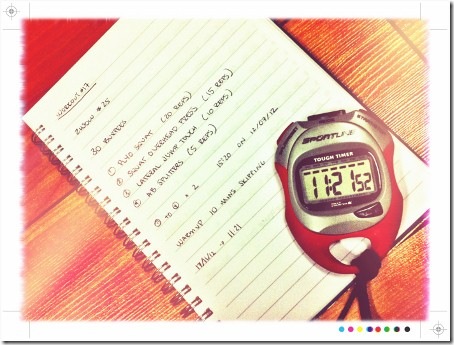 WORKOUT #17
ZUZOW #25
30 BURPEES
① PLIO SQUAT (20 REPS)
② SQUAT OVERHEAD PRESS (15 REPS)
③ LATERAL JUMP TOUCH (10 REPS)
④ AB SPLITTERS (5 REPS)
① TO ④ × 2
15:20 ON 12/07/12
WARM UP 10 MINS SKIPPING
→ 11:21
SPORTLINE
TOUGH TIMER
11:21 52